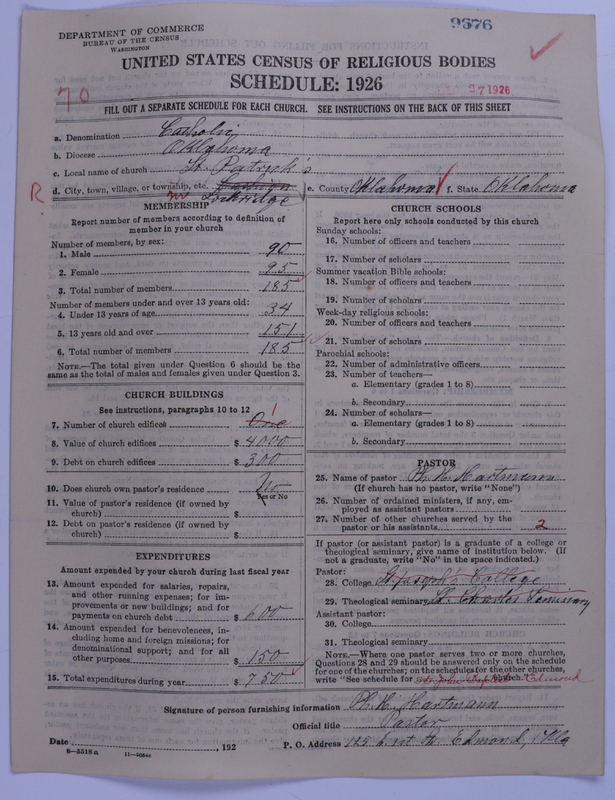 9376
DEPARTMENT OF COMMERCE
BUREAU OF THE CENSUS
WASHINGTON
UNITED STATES CENSUS OF RELIGIOUS BODIES
SCHEDULE: 1926
70
27 1926
FILL OUT A SEPARATE SCHEDULE FOR EACH CHURCH. SEE INSTRUCTIONS ON THE BACK OF THIS SHEET
a. Denomination Catholic
b. Diocese Oklahoma
c. Local name of church St. Patrick's
R. d. City, town, village, or township, etc. Lockridge e. County Oklahoma f. State Oklahoma
MEMBERSHIP
Report number of members according to definition of
member in your church
Number of members, by sex:
1. Male 90
2. Female 95
3. Total number of members 185
Number of members under and over 13 years old:
4. Under 13 years of age 34
5. 13 years old and over 151
6. Total number of members 185
NOTE.—The total given under Question 6 should be
same as the total of males and females given under Question 3.
CHURCH BUILDINGS
See instructions, paragraphs 10 to 12
7. Number of church edifices One 1
8. Value of church edifices $ 4000
9. Debt on church edifices $ 300
10. Does church own pastor's residence No
Yes or No
11. Value of pastor's residence (if owned by
church) $
12. Debt on pastor's residence (if owned by
church) $
EXPENDITURES
Amount expended by church during last fiscal year
13. Amount expended for salaries, repairs,
and other running expenses; for im-
provements or new buildings; and for
payments on church debt $ 600
14. Amount expended for benevolences, in-
cluding home and foreign missions; for
denominational support; and for all
other purposes $ 150
15. Total expenditures during year $ 750
CHURCH SCHOOLS
Report here only schools conducted by this church
Sunday schools:
16. Number of officers and teachers
17. Number of scholars
Summer vacation Bible schools:
18. Number of officers and teachers
19. Number of scholars
Week-day religious schools:
20. Number of officers and teachers
21. Number of scholars
Parochial schools:
22. Number of administrative officers
23. Number of teachers—
a. Elementary (grades 1 to 8)
b. Secondary
24. Number of scholars—
a. Elementary (grades 1 to 8)
b. Secondary
PASTOR
25. Name of pastor Ph. H. Hartmann
(If church has no pastor, write "None")
26. Number of ordained ministers, if any, em-
ployed as assistant pastors
27. Number of other churches served by the
pastor or his assistants 2
If pastor (or assistant pastor) is a graduate of a college or
theological seminary, give name of institution below. (If
not a graduate, write "No" in the space indicated.)
Pastor:
28. College St. Joseph's College
29. Theological seminary St. Charles Seminary
Assistant pastor:
30. College
31. Theological seminary
NOTE.—Where one pastor serves two or more churches,
Questions 28 and 29 should be answered only on the schedule
for one of the churches; on the schedules for the other churches,
write "See schedule for St. John Baptist Church." Edmond
Signature of person furnishing information Ph. H. Hartmann
Official title Pastor
Date , 192 P. O. Address 125 E. 1st St. Edmond, Okla
8—5518a 11—